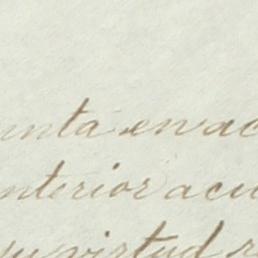 unta en ac
nterior acu
su virtud r